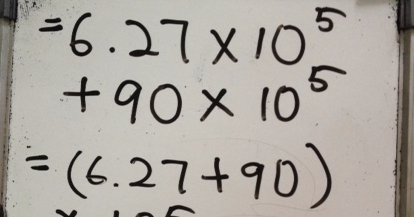 =6.27×10⁵
+90×10⁵
=(6.27+90)
×10⁵